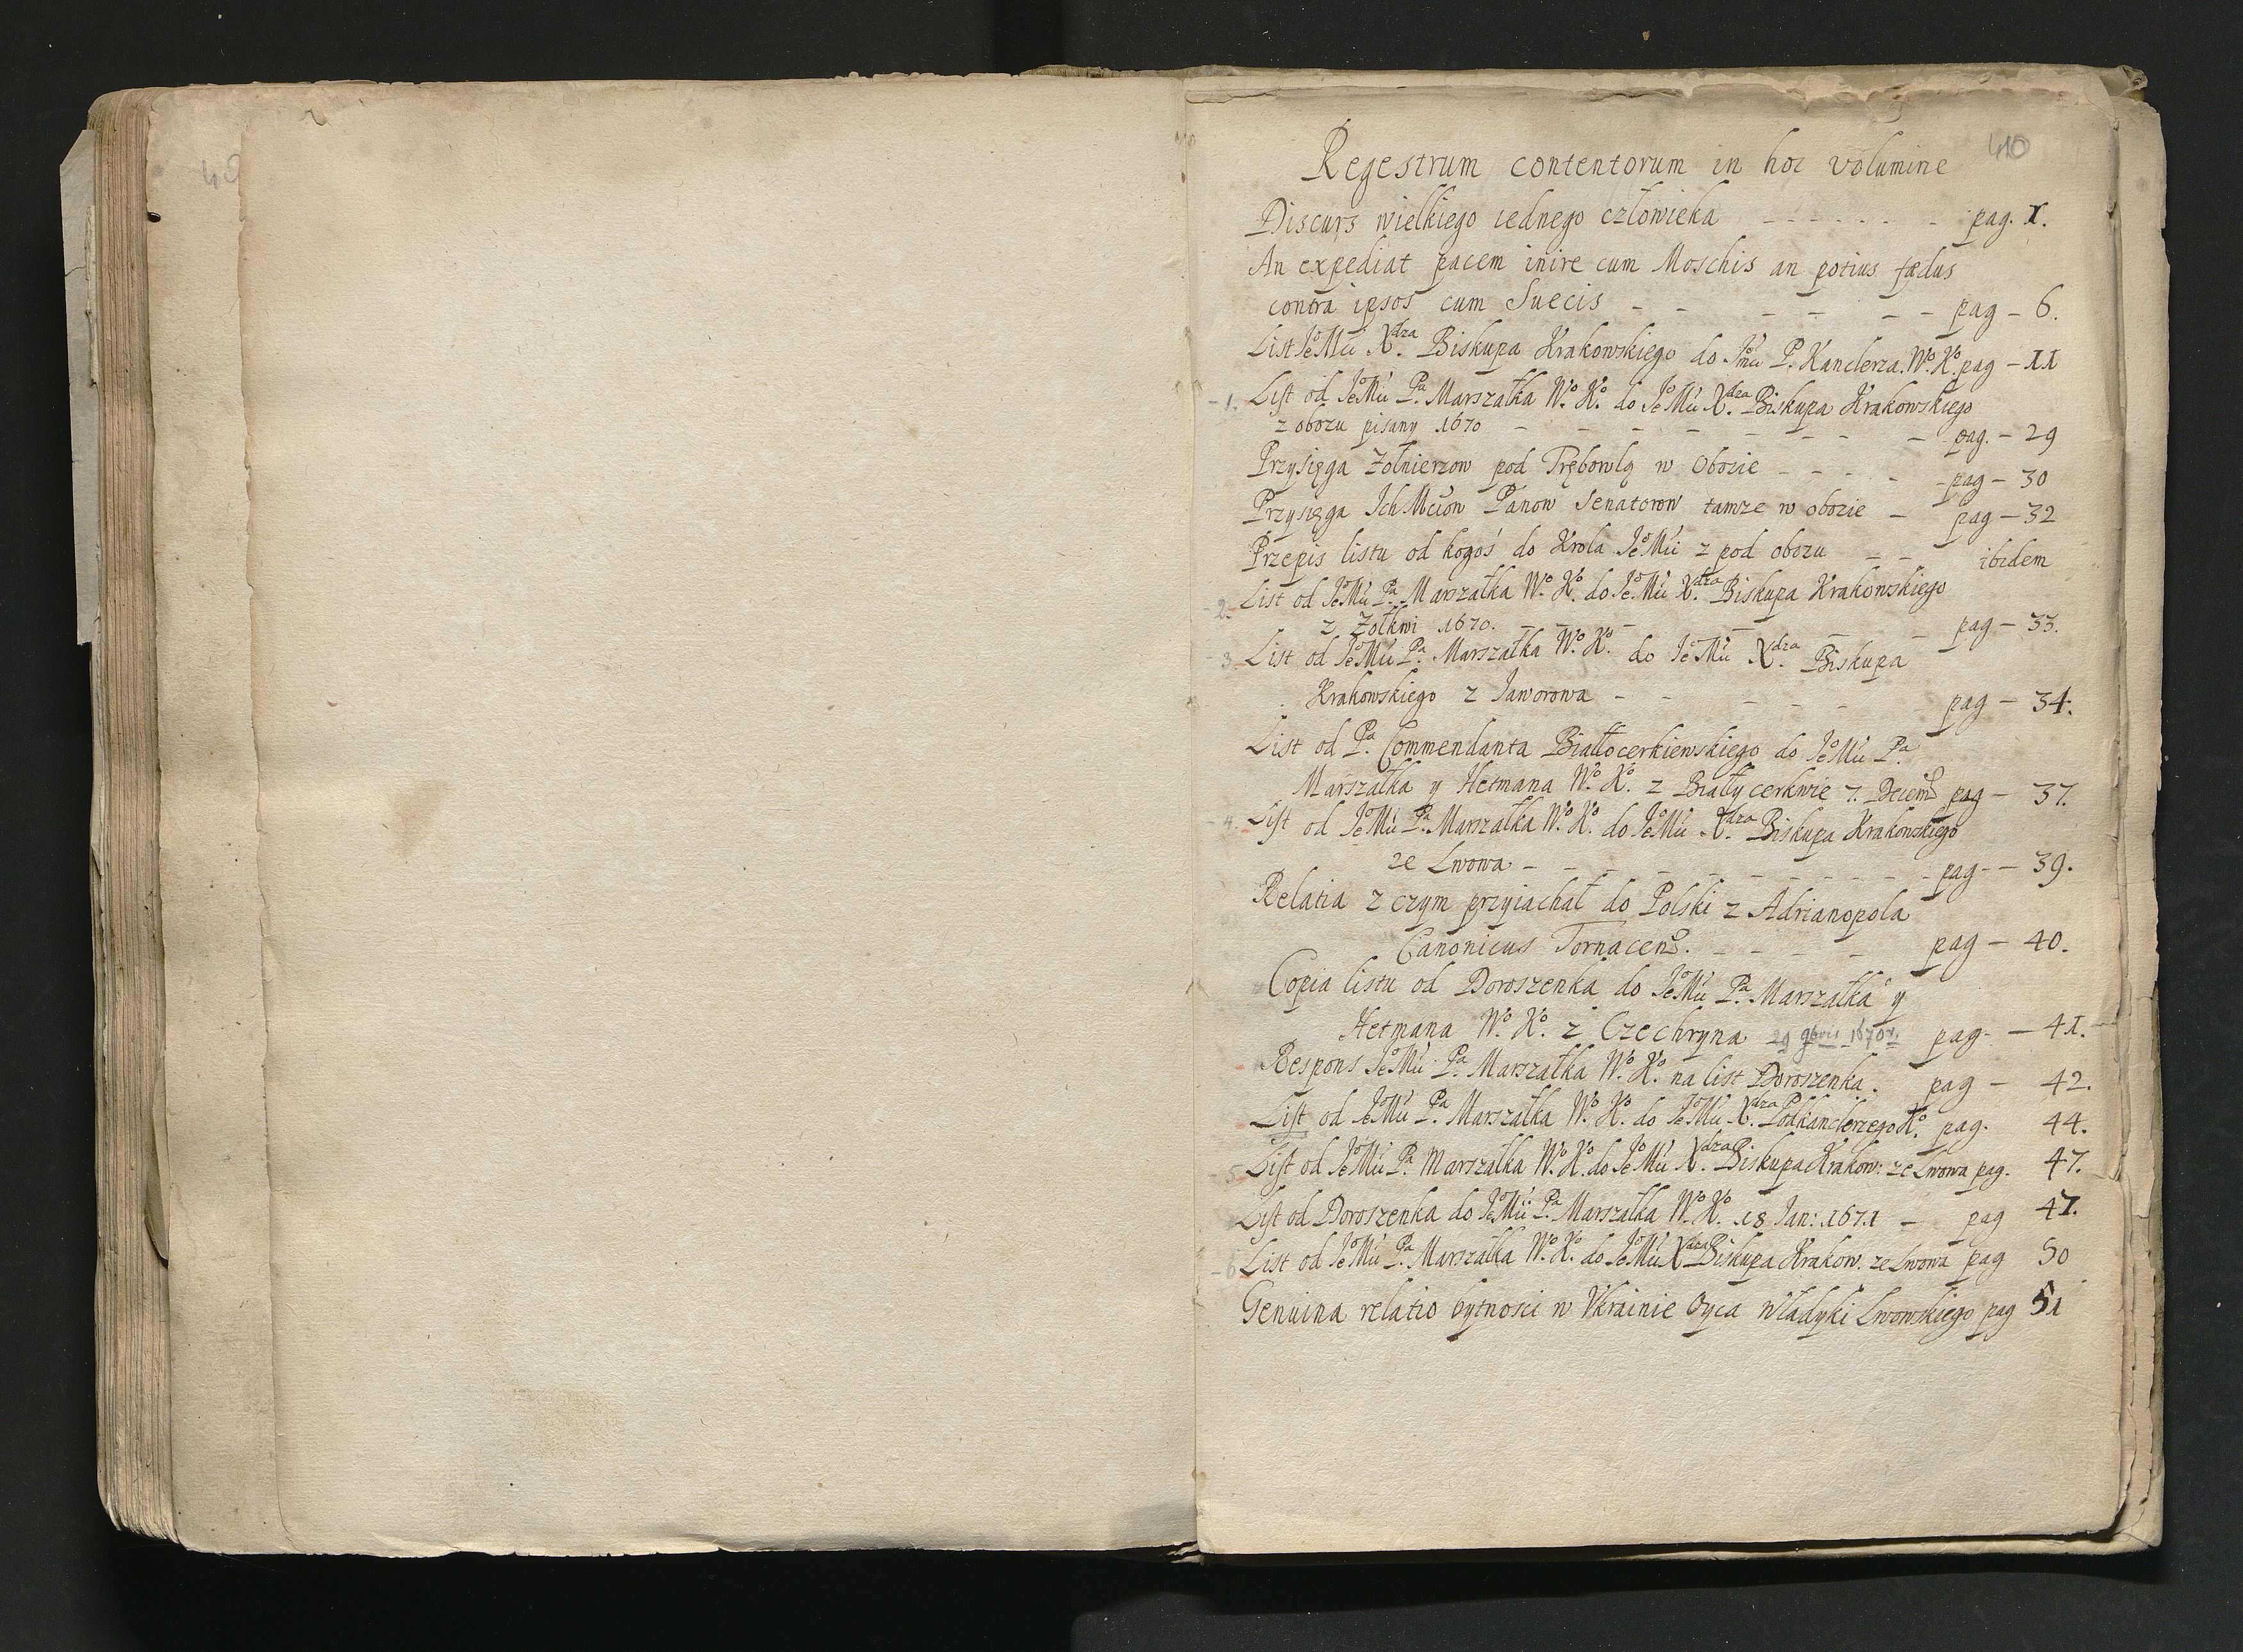 410
Regestrum contentorum in hoc volumine
Discurs wielkiego iednego człowieka - - - - - - - pag. 1.
An expediat pacem inire cum Moschis an potius fædus
contra ipsos cum Suecis - - - - - - pag - 6.
List JeºMci Xdza Biskupa Krakowskiego do Jºmci P. Kanclerza Wº Kº pag - 11
- 1. List od JeºMci Pa Marszałka Wº Kº do JeºMci Xdza Biskupa Krakowskiego
z obozu pisany 1670 - - - - - - - - pag. - 29
Przysięga Zołnierzow pod Trębowlą w Obozie - - - - pag - 30
Przysięga Ich Mciow Panow Senatorow tamze w obozie - pag - 32
Przepis listu od kogoś do Krola JeºMci z pod obozu - - ibidem
- 2. List od JeºMci Pa Marszałka Wº Kº do JeºMci Xdza Biskupa Krakowskiego
z Zołkwi 1670. - - - - - - pag - 33.
- 3. List od JeºMci Pa Marszałka Wº Kº do JeºMci Xdza Biskupa
Krakowskiego z Jaworowa - - - - - - pag - 34.
List od Pa Commendanta Białłocerkiewskiego do JeºMci Pa
Marszałka y Hetmana Wº Kº z Białły cerkwie 7. Decemb pag - 37.
- 4. List od JeºMci Pa Marszałka Wº Kº do JeºMci Xdza Biskupa Krakowskiego
ze Lwowa - - - - - - - - - - - pag - - 39.
Relatia z czym przyiachał do Polski z Adrianopola
Canonicus Tornacens. - - - - pag - 40.
Copia listu od Doroszenka do JeºMci Pa Marszałka y
Hetmana Wº Kº z Czechryna 29 9bris 1670 r. pag - 41.
Respons JeºMci Pa Marszałka Wº Kº na list Doroszenka. pag - 42.
List od JeºMci Pa Marszałka Wº Kº do JeºMci Xdza Podkanclerzego Kº pag. 44.
- 5. List od JeºMci Pa Marszałka Wº Kº do JeºMci Xdza Biskupa Krakow: ze Lwowa pag. 47.
List od Doroszenka do JeºMci Pa Marszałka Wº Kº 18 Jan: 1671 - pag 47.
- 6. List od JeºMci Pa Marszałka Wº Kº do JeºMci Xdza Biskupa Krakow. ze Lwowa pag 50
Genuina relatio bytnosci w Vkrainie Oyca Władyki Lwowskiego pag 51